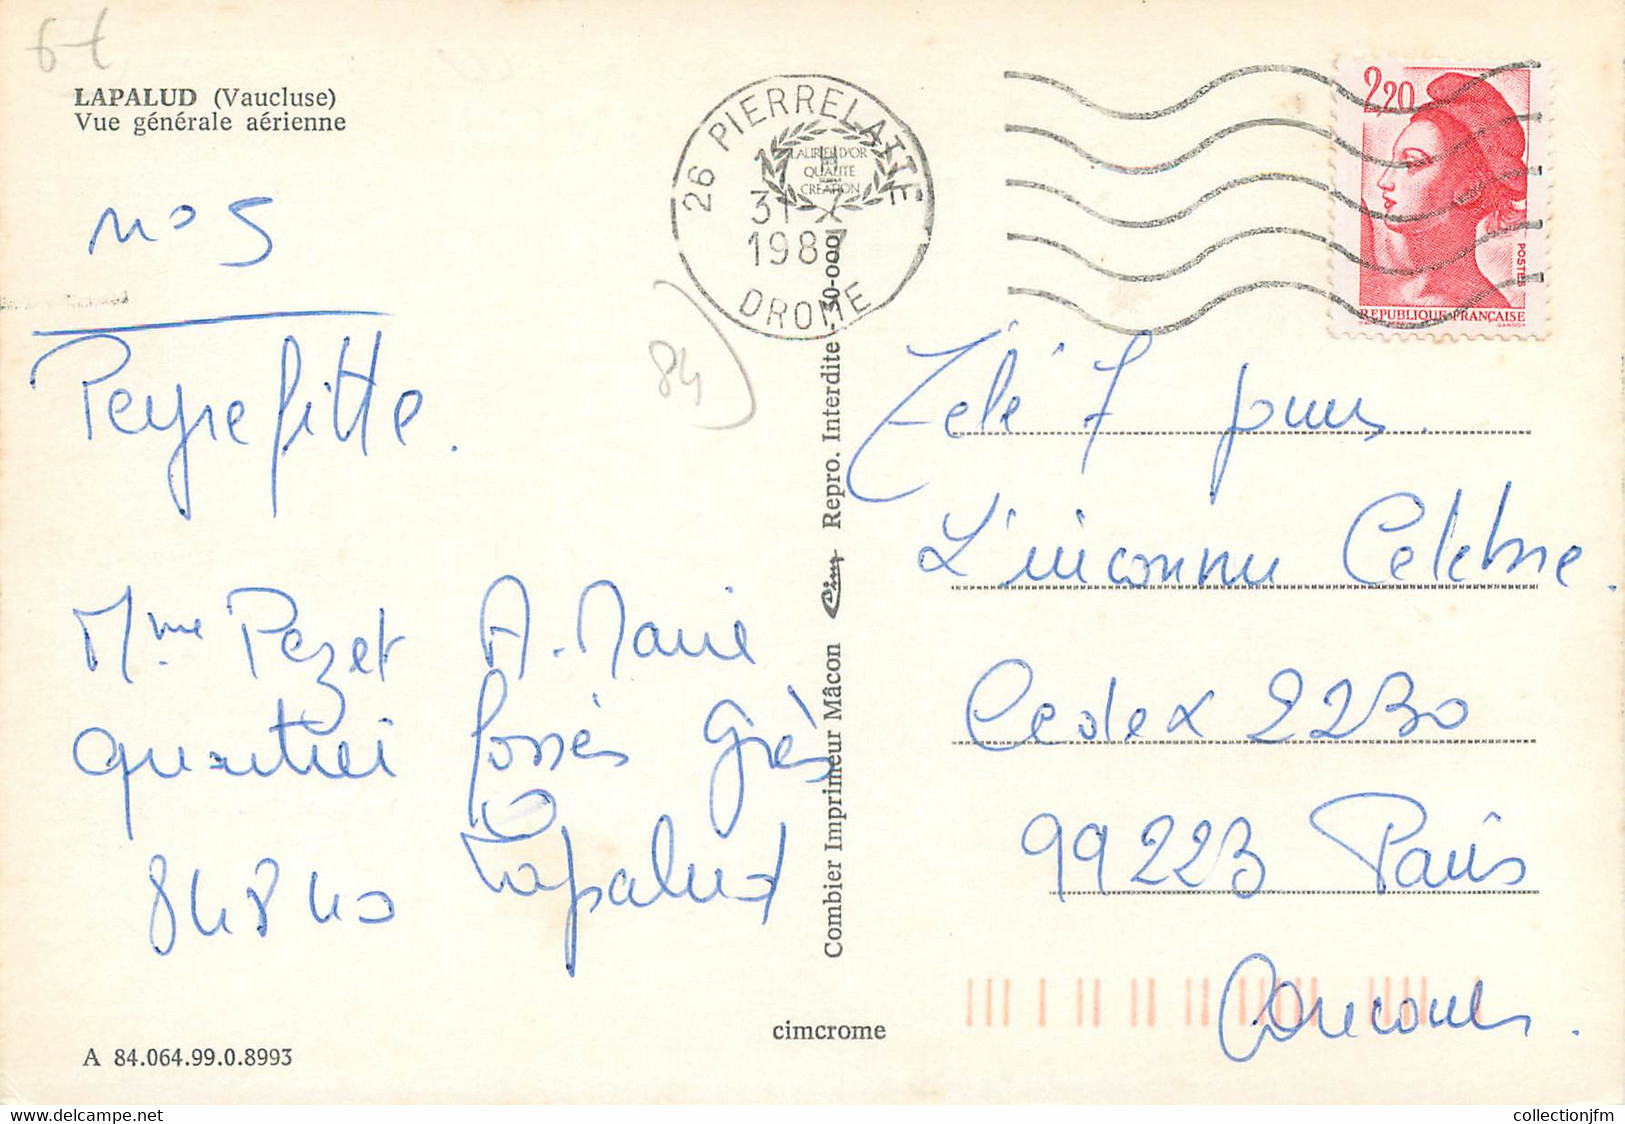 6t
LAPALUD (Vaucluse)
Vue générale aérienne
n° 5
Peyrefitte.
Mme Pezet A. Marie
quartier fossés Grès
Lapalud
84840
A 84.064.99.0.8993
cimcrome
84)
26 PIERRELATTE
LAURIER D'OR
QUALITE
CREATION
17 H
31 - 7
1987
DROME
Combier Imprimeur Mâcon Cim Repro. Interdite 30-000
2,20
POSTES
REPUBLIQUE FRANÇAISE
GANDON
Télé 7 jours.
L'inconnu Celebre.
Cedex 2230
99223 Paris
Concours.
collectionjfm